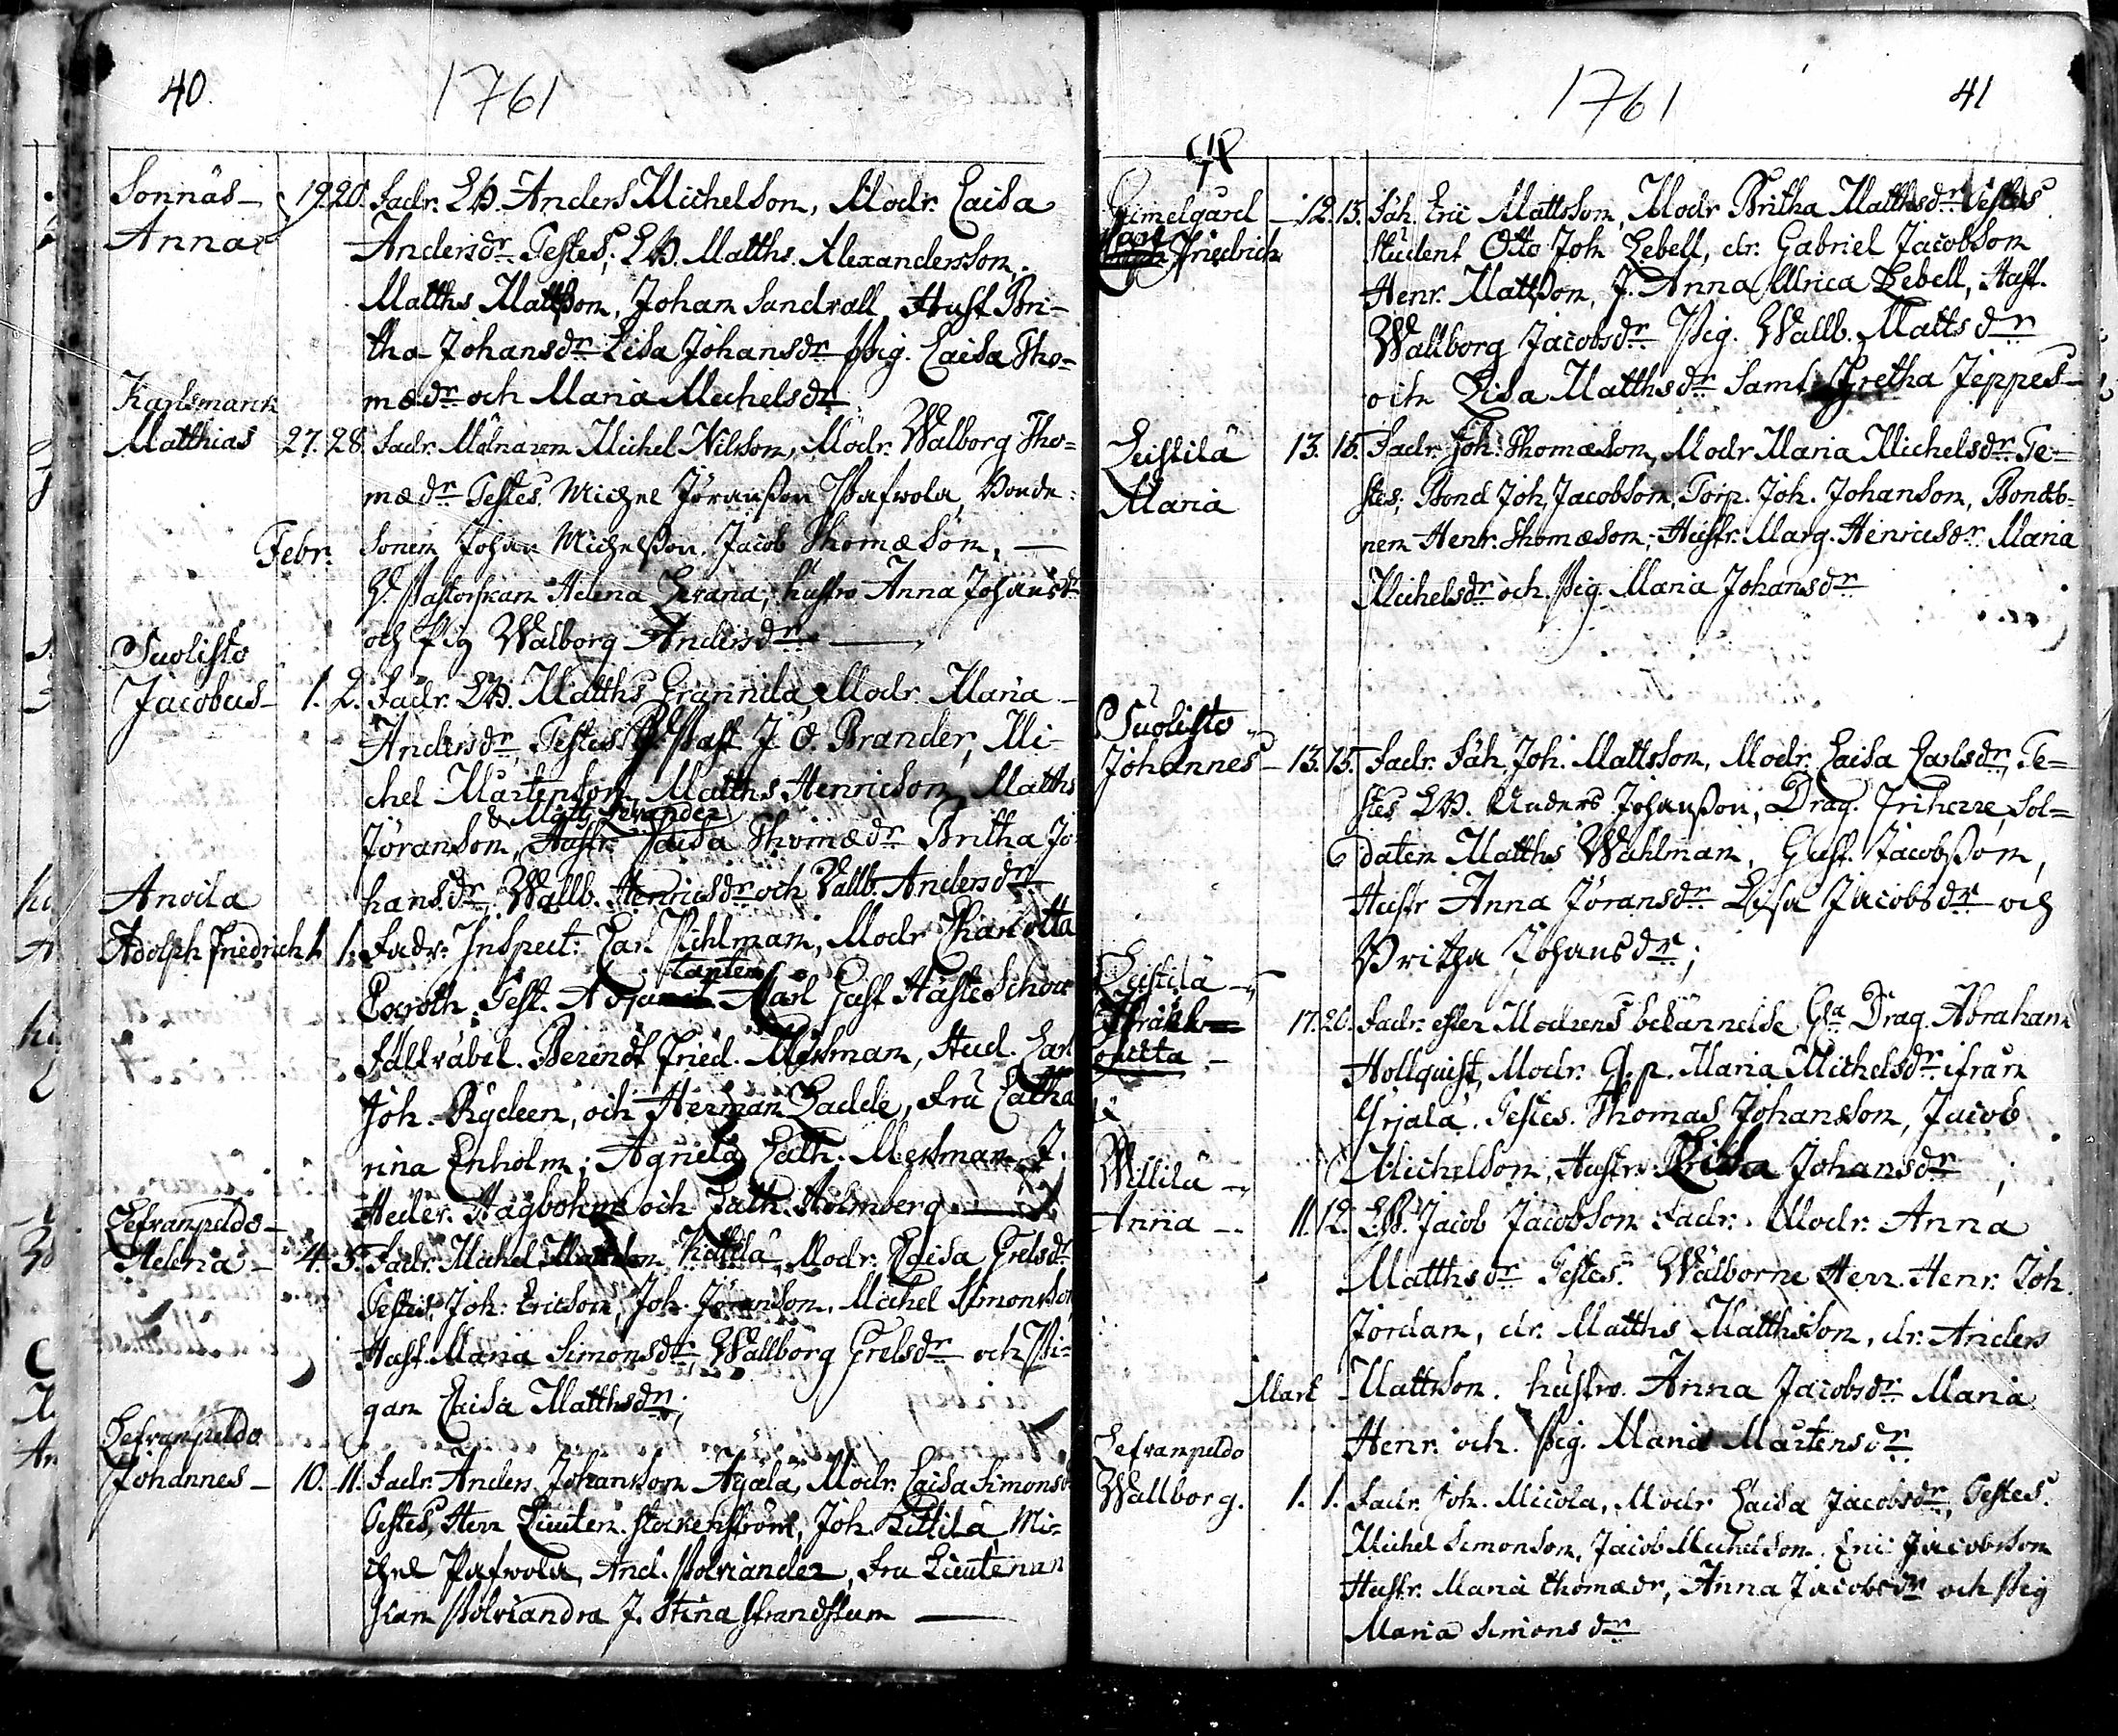 40.
1761
Sonnäs
Anna
19. 20. Fadr. LB. Anders Michelsson, Modr. Caisa
Andersdr. Testes; LB. Matths. Alexandersson,
Matths Mattsson, Johan Sandvall, Hust Bri-
tha Johansdr Lisa Johansdr Pig. Caisa Tho-
mædr och Maria Michelsdr
Karlsmark
Matthias 27. 28. Fadr. Mölnaren Michel Nilsson, Modr. Walborg Tho-
mædr Testes. Michel Jöransson Pafwola, Bonde-
Febr.
sonen Johan Michelsson, Jacob Thomæson,
Pastorskan Helena Levana; hustro Anna Johansdr
och Pig Walborg Andersdr
Suolisto
Jacobus 1. 2. Fadr. LB. Matths Grannila, Modr. Maria
Andersdr, Testes Past J. O. Brander, Mi-
chel Mårtenson, Matths Henricson Matths
& Matts Levander
Jöranson, Hustr. Caisa Thomædr Britha Jo-
hansdr. Wallb. Henricsdr och Vallb. Andersdr
Anoila
Adolph Friedrich 1. 1. Fadr. Inspect: Carl Pihlman, Modr Charlotta
Test. Carl Gust Hästesko
Berendt Fried. Mesman, Stud. Carl
Joh. Rydeen, och Herman Ladde, Fru Catha
rina Enholm; Agneta Cath. Mesman J.
Heder. Hagbohm och Cath. Holmberg
Lefranpeldo
Helena 4. 5. Fadr. Michel Kattila, Modr. Caisa Grelsdr
Testes, Joh. Ericson, Joh. Jöranson, Michel Simonsson
Hust. Maria Simonsdr, Wallborg Grelsdr och Pi-
gan Caisa Matthsdr;
Lefranpeldo
Johannes 10. 11. Fadr. Anders Johansson Ågala, Modr. Caisa Simonsdr
Testes, Herr Lieuten. Stockenström, Joh. Kittilä Mi-
chel Pafwola, And. Polviander, Fru Lieutenan
skan Polviandra J. Stina Strandstum
1761
41
Gimelgård
Carl Friedrich
12. 13. Fäh. Eric Mattsson, Modr Britha Matthsdr Testes
Student Otto Joh Lebell, dr. Gabriel Jacobsson
Henr. Mattsson, J. Anna Ulrica Lebell, Hust.
Wallborg Jacobsdr Pig. Wallb. Mattsdr
och Lisa Matthsdr Samt Gretha Jeppes
Leistilä
Maria
13. 15. Fadr. Joh. Thomæson, Modr Maria Michelsdr. Te-
stes; Bond Joh Jacobsson, Torp. Joh. Johanson, Bondso-
nen Henr. Thomæson; Hustr. Marg. Henricsdr. Maria
Michelsdr och Pig Maria Johansdr
Suolisto
Johannes 13. 15. Fadr. Fäh Joh. Mattsson, Modr. Caisa Carlsdr, Te-
stes LB. Anders Johansson, Drag. Friherre, Sol-
daten Matths Wahlman, Gust. Jacobsson,
Hustr Anna Jöransdr Lisa Jacobsdr och
Britha Johansdr;
Leistilä
17. 20. Fadr. efter Modrens bekännelse Drag. Abraham
Hollquist, Modr. Q. p. Maria Michelsdr ifrån
Yrjala. Testes. Thomas Johansson, Jacob
Michelson, Hustro Britha Johansdr;
Willilä
Anna 11. 12. LB. Jacob Jacobson Fadr. Modr. Anna
Matthsdr Testes. Wälborne Herr. Henr. Joh.
Jordan, dr. Matths Matthsson, dr. Anders
Mart
Mattsson. hustro. Anna Jacobsdr Maria
Henr. och Pig. Maria Mårtensdr
Lefranpeldo
Wallborg. 1. 1. Fadr. Joh. Micola, Modr Caisa Jacobsdr, Testes.
Michel Simonson, Jacob Michelson, Eric Jacobsson
Hustr. Maria Thomædr, Anna Jacobsdr och Pig
Maria Simonsdr